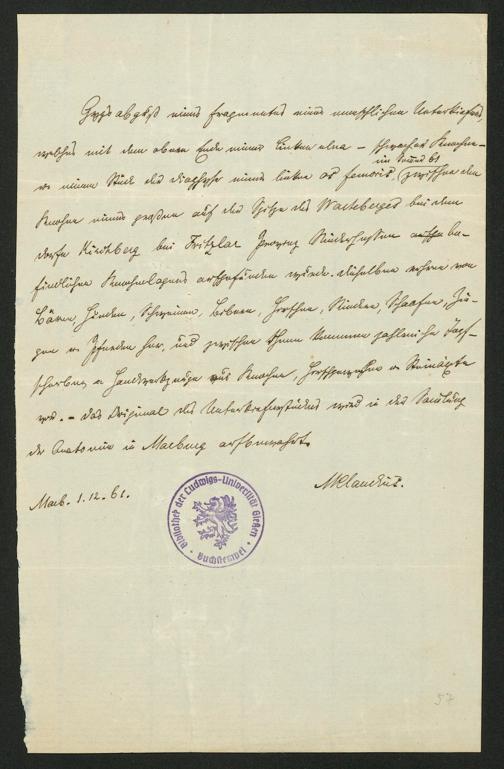 Gypsabguß eines Fragmentes eines menschlichen Unterkiefers,
welches mit dem obern Ende einer linken ulna –
im Sommer 61
u. einem Stück der diaphyse eines linken os femoris, zwischen den
Knochen eines großen auf der Spitze des Wachberges bei dem
Dorfe Kirchberg bei Fritzlar Provinz Niederhessen be-
findlichen Knochenlagers aufgefunden wurde. dieselben rühren von
Bären, Hunden, Schweinen, Bibern, Hirschen, Rindern, Schaafen, Zie-
gen u. Pferden her, und zwischen ihnen kommen zahlreiche Topf-
scherben u. Handwerkzeuge aus Knochen, Hirschgeweihen u. Steinäxte
vor. – das Original des Unterkieferstückes wird in der Samlung
der Anatomie in Marburg aufbewahrt.
Marb. 1.12.61.
Bibliothek der Ludwigs-Universität Gießen
Buchstempel
57